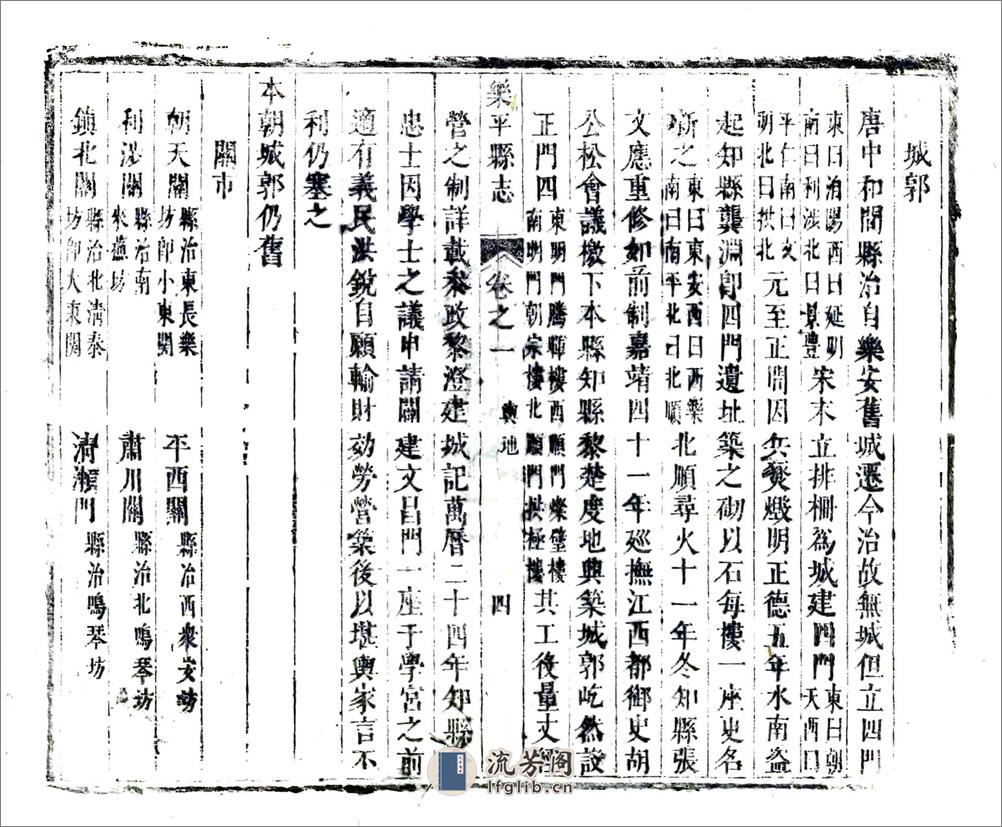 城郭
唐中和間縣治自樂安舊城遷今治故無城但立四門
東曰洎陽西曰延明南曰利涉北曰景豐宋末立排柵為城建四門東曰朝天西曰
平仁南曰文明北曰拱北元至正間因兵燹燬明正德五年水南盜
起知縣龔淵卽四門遺址築之砌以石每樓一座更名
新之東曰東安西曰西樂南曰南平北曰北順北順尋火十一年冬知縣張
文應重修如前制嘉靖四十一年廵撫江西都御史胡
公松會議檄下本縣知縣黎楚度地興築城郭屹然設
正門四東明門騰輝樓西順門燦璧樓南明門朝宗樓北順門拱極樓其工役量丈經
樂平縣志 卷之一 輿地 四
營之制詳載叅政黎澄建城記萬曆二十四年知縣
忠士因學士之議申請闢建文昌門一座于學宮之前
適有義民洪銳自願輸財効勞營築後以堪輿家言不
利仍塞之
本朝城郭仍舊
關市
朝天關縣治東長樂坊卽小東關 平西關縣治西衆安坊
利涉關縣治南來蘓坊 肅川關縣治北鳴琴坊
鎮北關縣治北清泰坊卽大東關 清灝門縣治鳴琴坊
流芳阁
lfglib.cn